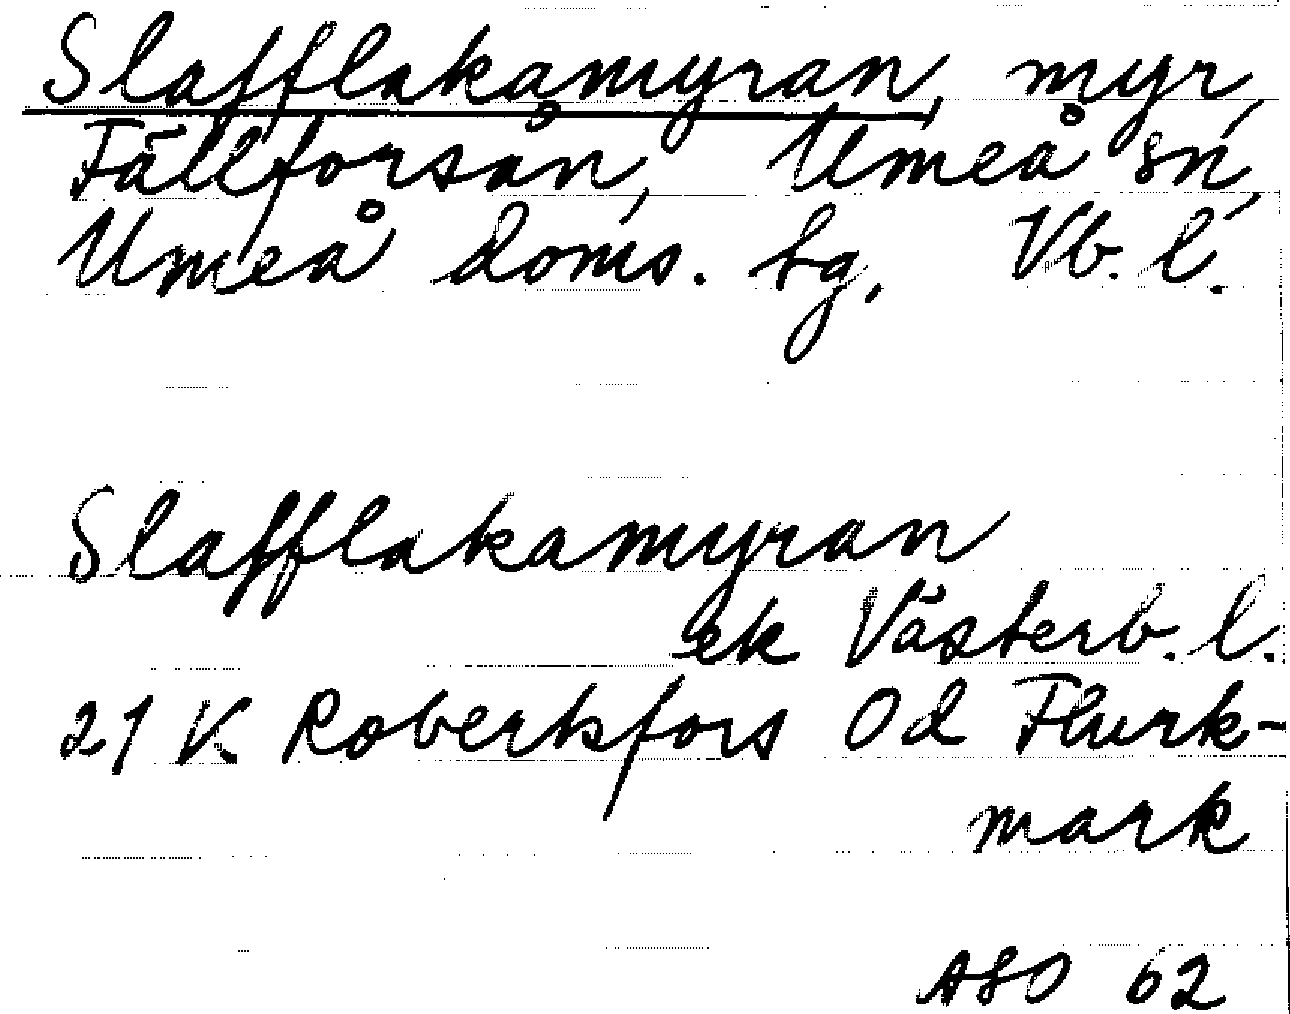 Slafflakamyran, myr,
Fällforsån, Umeå sn,
Umeå doms. tg, Vb. l.
Slafflakamyran
ek Västerb. l.
21 K Robertsfors 0d Flurk-
mark
ASO 62